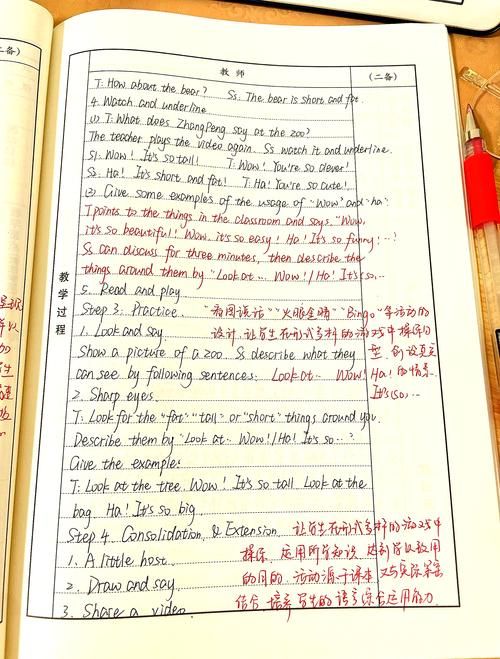 二备)
教 师
(二备)
教学过程
T: How about the bear? Ss: The bear is short and fat.
4. Watch and underline
(1) T: What does ZhangPeng say at the zoo?
The teacher plays the video again. Ss watch it and underline.
S1: Wow! It's so tall! T: Wow! You're so clever!
S2: Ha! It's short and fat! T: Ha! You're so cute!
(2) Give some examples of the usage of "Wow" and "ha":
T points to the things in the classroom and says, "Wow,
it's so beautiful! Wow, it's so easy! Ha! It's so funny!...?
Ss can discuss for three minutes, then describe the
things around them by "Look at... Wow!/Ha! It's so...
5. Read and play
Step 3: Practice. "看图说话" "火眼金睛" "Bingo" 等活动的
1. Look and say. 设计,让学生在形式多样的活动中操练句
Show a picture of a zoo. Ss describe what they 型,创设真实
can see by following sentences: Look at... Wow! Ha! 的情景.
It's so...
2. Sharp eyes.
T: Look for the "fat" "tall" or "short" things around you.
Describe them by "Look at... Wow!/Ha! It's so...?
Give the example:
T: Look at the tree. Wow! It's so tall. Look at the
bag. Ha! It's so big.
Step 4. Consolidation & Extension. 让学生在形式多样的活动中
1. A little host. 操练,运用所学知识,达到学以致用
2. Draw and say 的目的.活动源于课本,又与实际
结合,培养学生的语言综合运用能力.
3. Share a video.